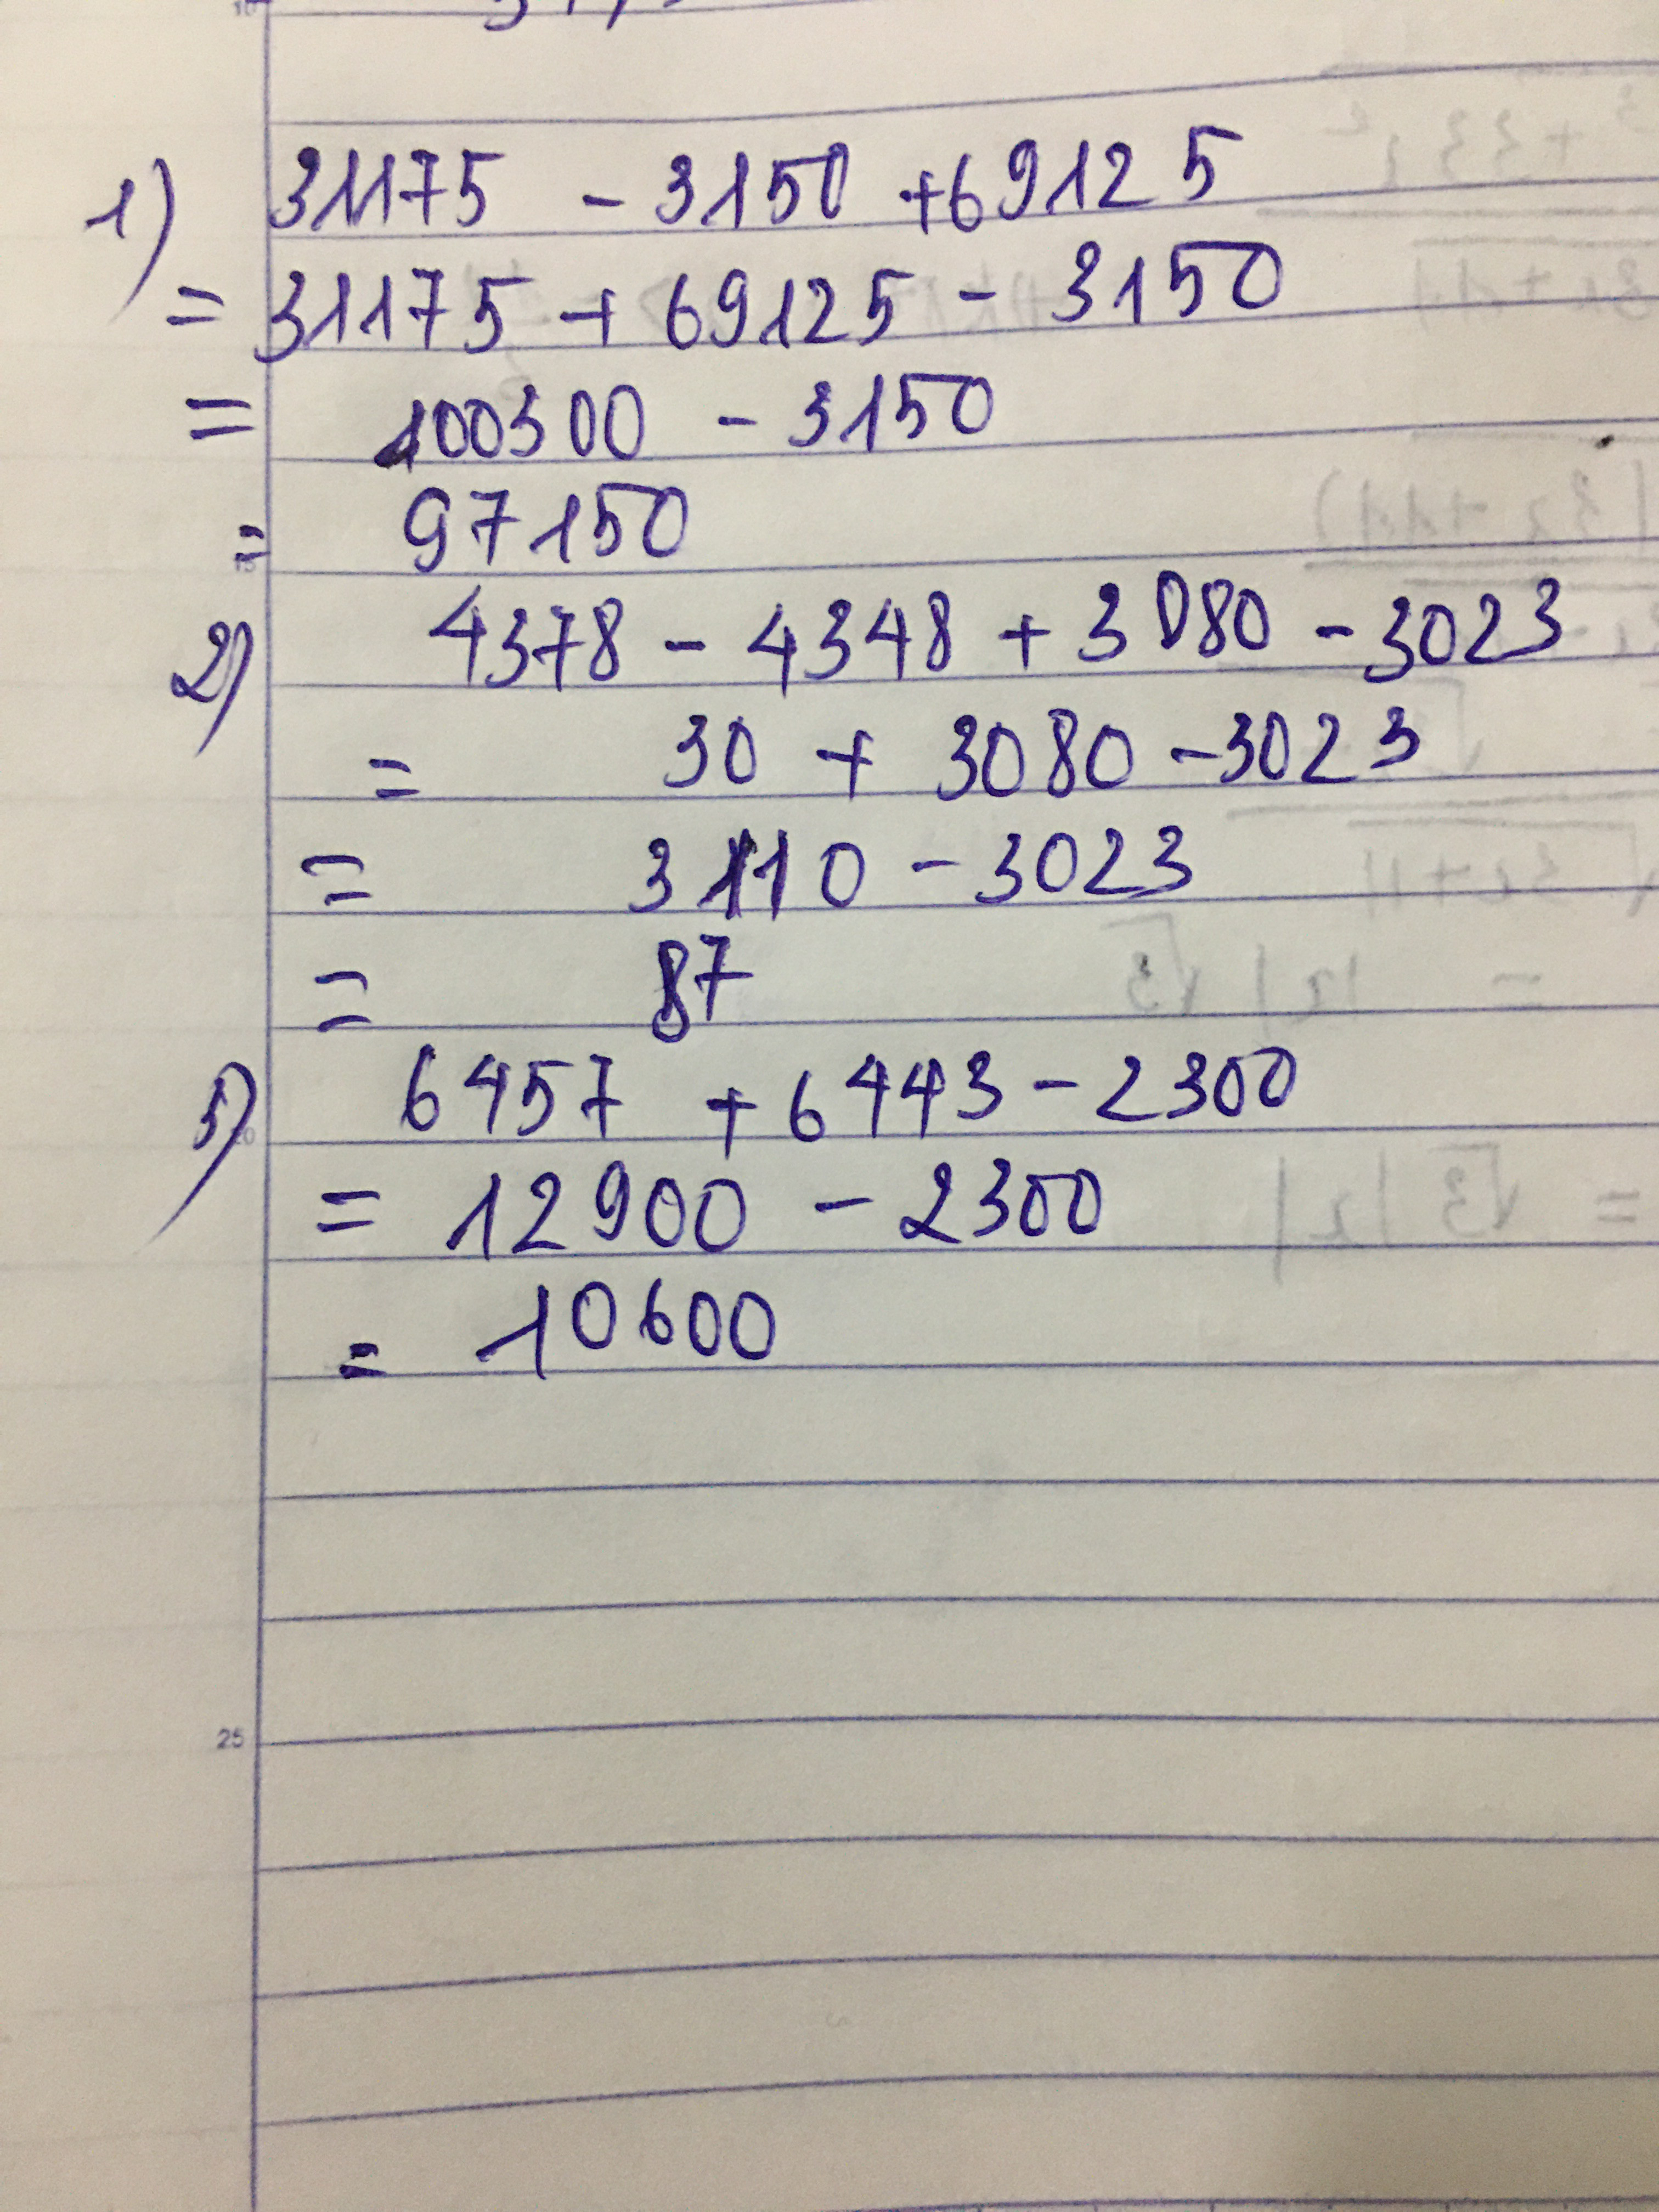 1) 31175 - 3150 + 69125
= 31175 + 69125 - 3150
= 100300 - 3150
= 97150
2) 4378 - 4348 + 3080 - 3023
= 30 + 3080 - 3023
= 3110 - 3023
= 87
5) 6457 + 6443 - 2300
= 12900 - 2300
= 10600
25